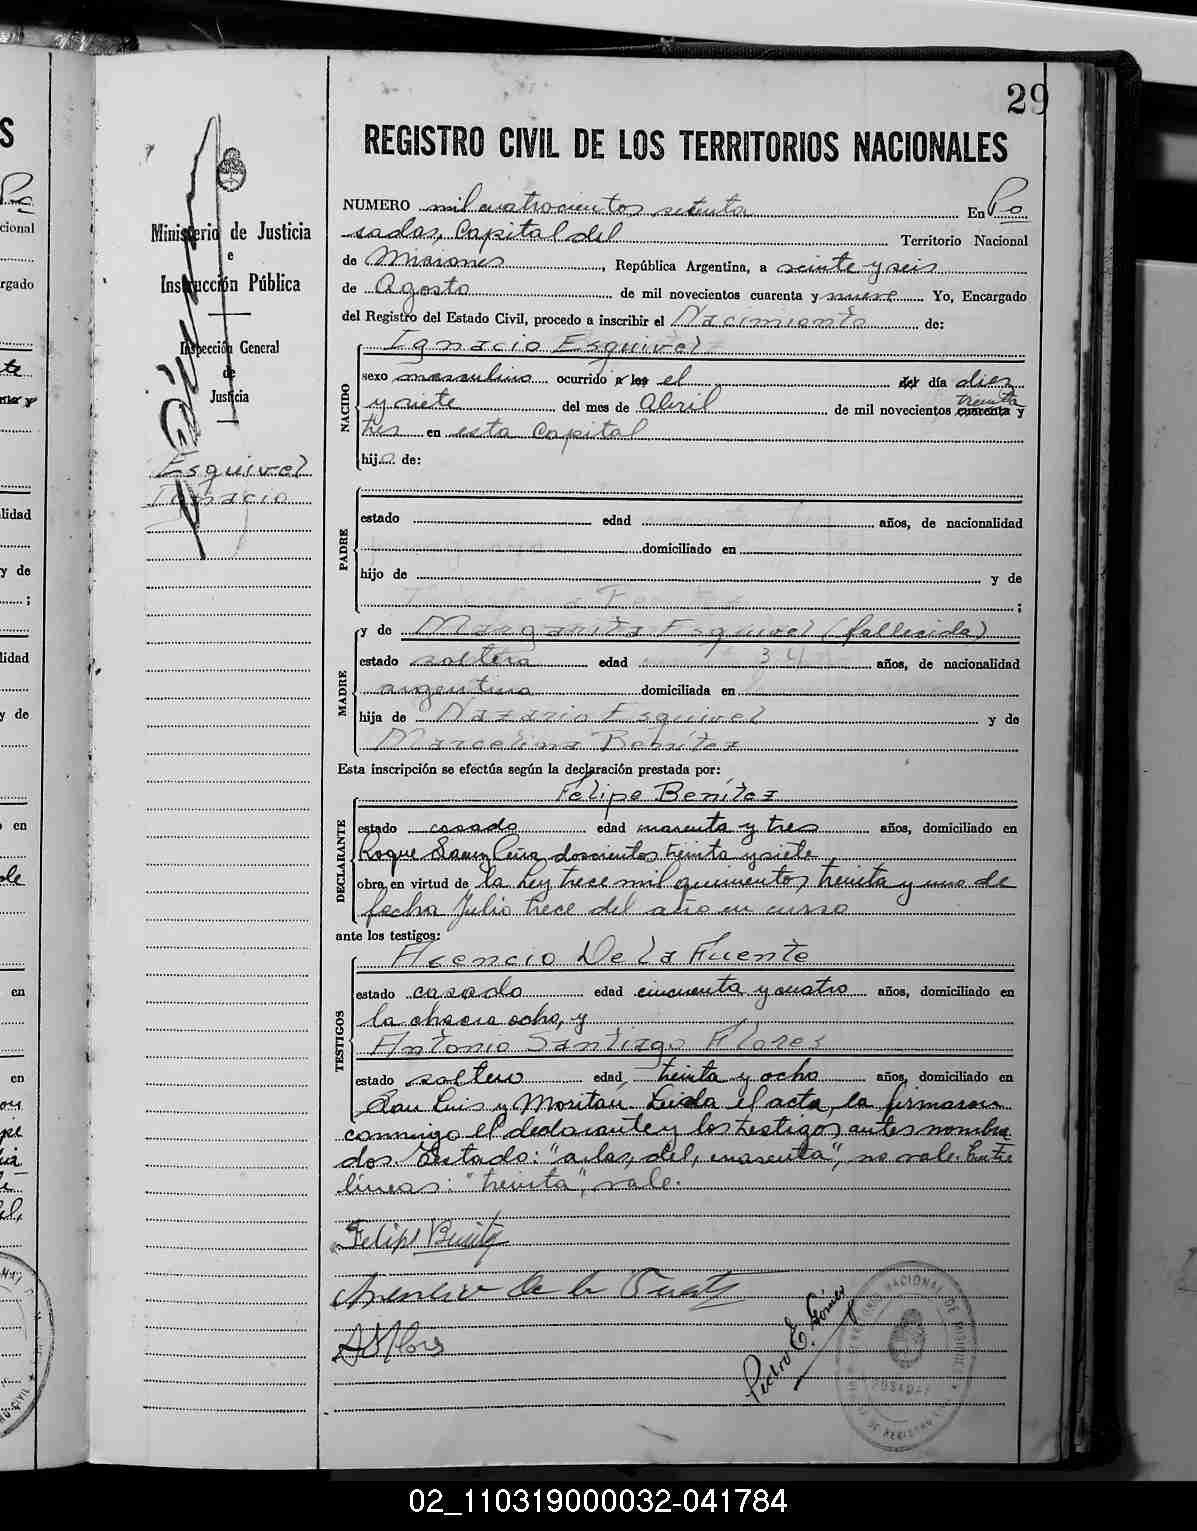 29
REGISTRO CIVIL DE LOS TERRITORIOS NACIONALES
Ministerio de Justicia
e
Instrucción Pública
Inspección General
de
Justicia
Esquivel
Ignacio
NUMERO mil cuatrocientos setenta En Po
sadas, Capital del Territorio Nacional
de Misiones, República Argentina, a veinte y seis
de Agosto de mil novecientos cuarenta y nueve Yo, Encargado
del Registro del Estado Civil, procedo a inscribir el Nacimiento de:
NACIDO
Ignacio Esquivel
sexo masculino ocurrido a las el del día diez
y siete del mes de Abril de mil novecientos cuarenta treinta y
tres en esta Capital
hijo de:
PADRE
estado edad años, de nacionalidad
domiciliado en
hijo de y de
;
MADRE
y de Margarita Esquivel (fallecida)
estado soltera edad 34 años, de nacionalidad
argentina domiciliada en
hija de Nazario Esquivel y de
Marcelina Benítez
Esta inscripción se efectúa según la declaración prestada por:
DECLARANTE
Felipe Benítez
estado casado edad cuarenta y tres años, domiciliado en
Roque Saenz Peña doscientos treinta y siete
obra en virtud de la ley trece mil quinientos treinta y uno de
fecha Julio trece del año en curso
ante los testigos:
TESTIGOS
Acencio De la Fuente
estado casado edad cincuenta y cuatro años, domiciliado en
la chacra ocho, y
Antonio Santiago Flores
estado soltero edad treinta y ocho años, domiciliado en
San Luis y Moritán. Leida el acta, la firmaron
conmigo el declarante y los testigos antes nombra
dos. Testado: "a las, del, cuarenta", no vale. Entre
líneas: "treinta", vale.
Felipe Benitez
Asencio de la Fuente
A S Flores
Pedro E. Gómez
POSADAS
02_110319000032-041784